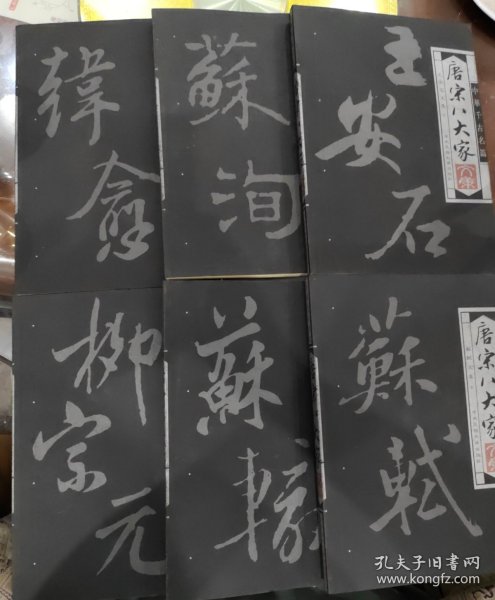 韓愈
蘇洵
王安石
唐宋八大家
柳宗元
蘇轍
蘇軾
唐宋八大家
孔夫子旧书网
www.kongfz.com